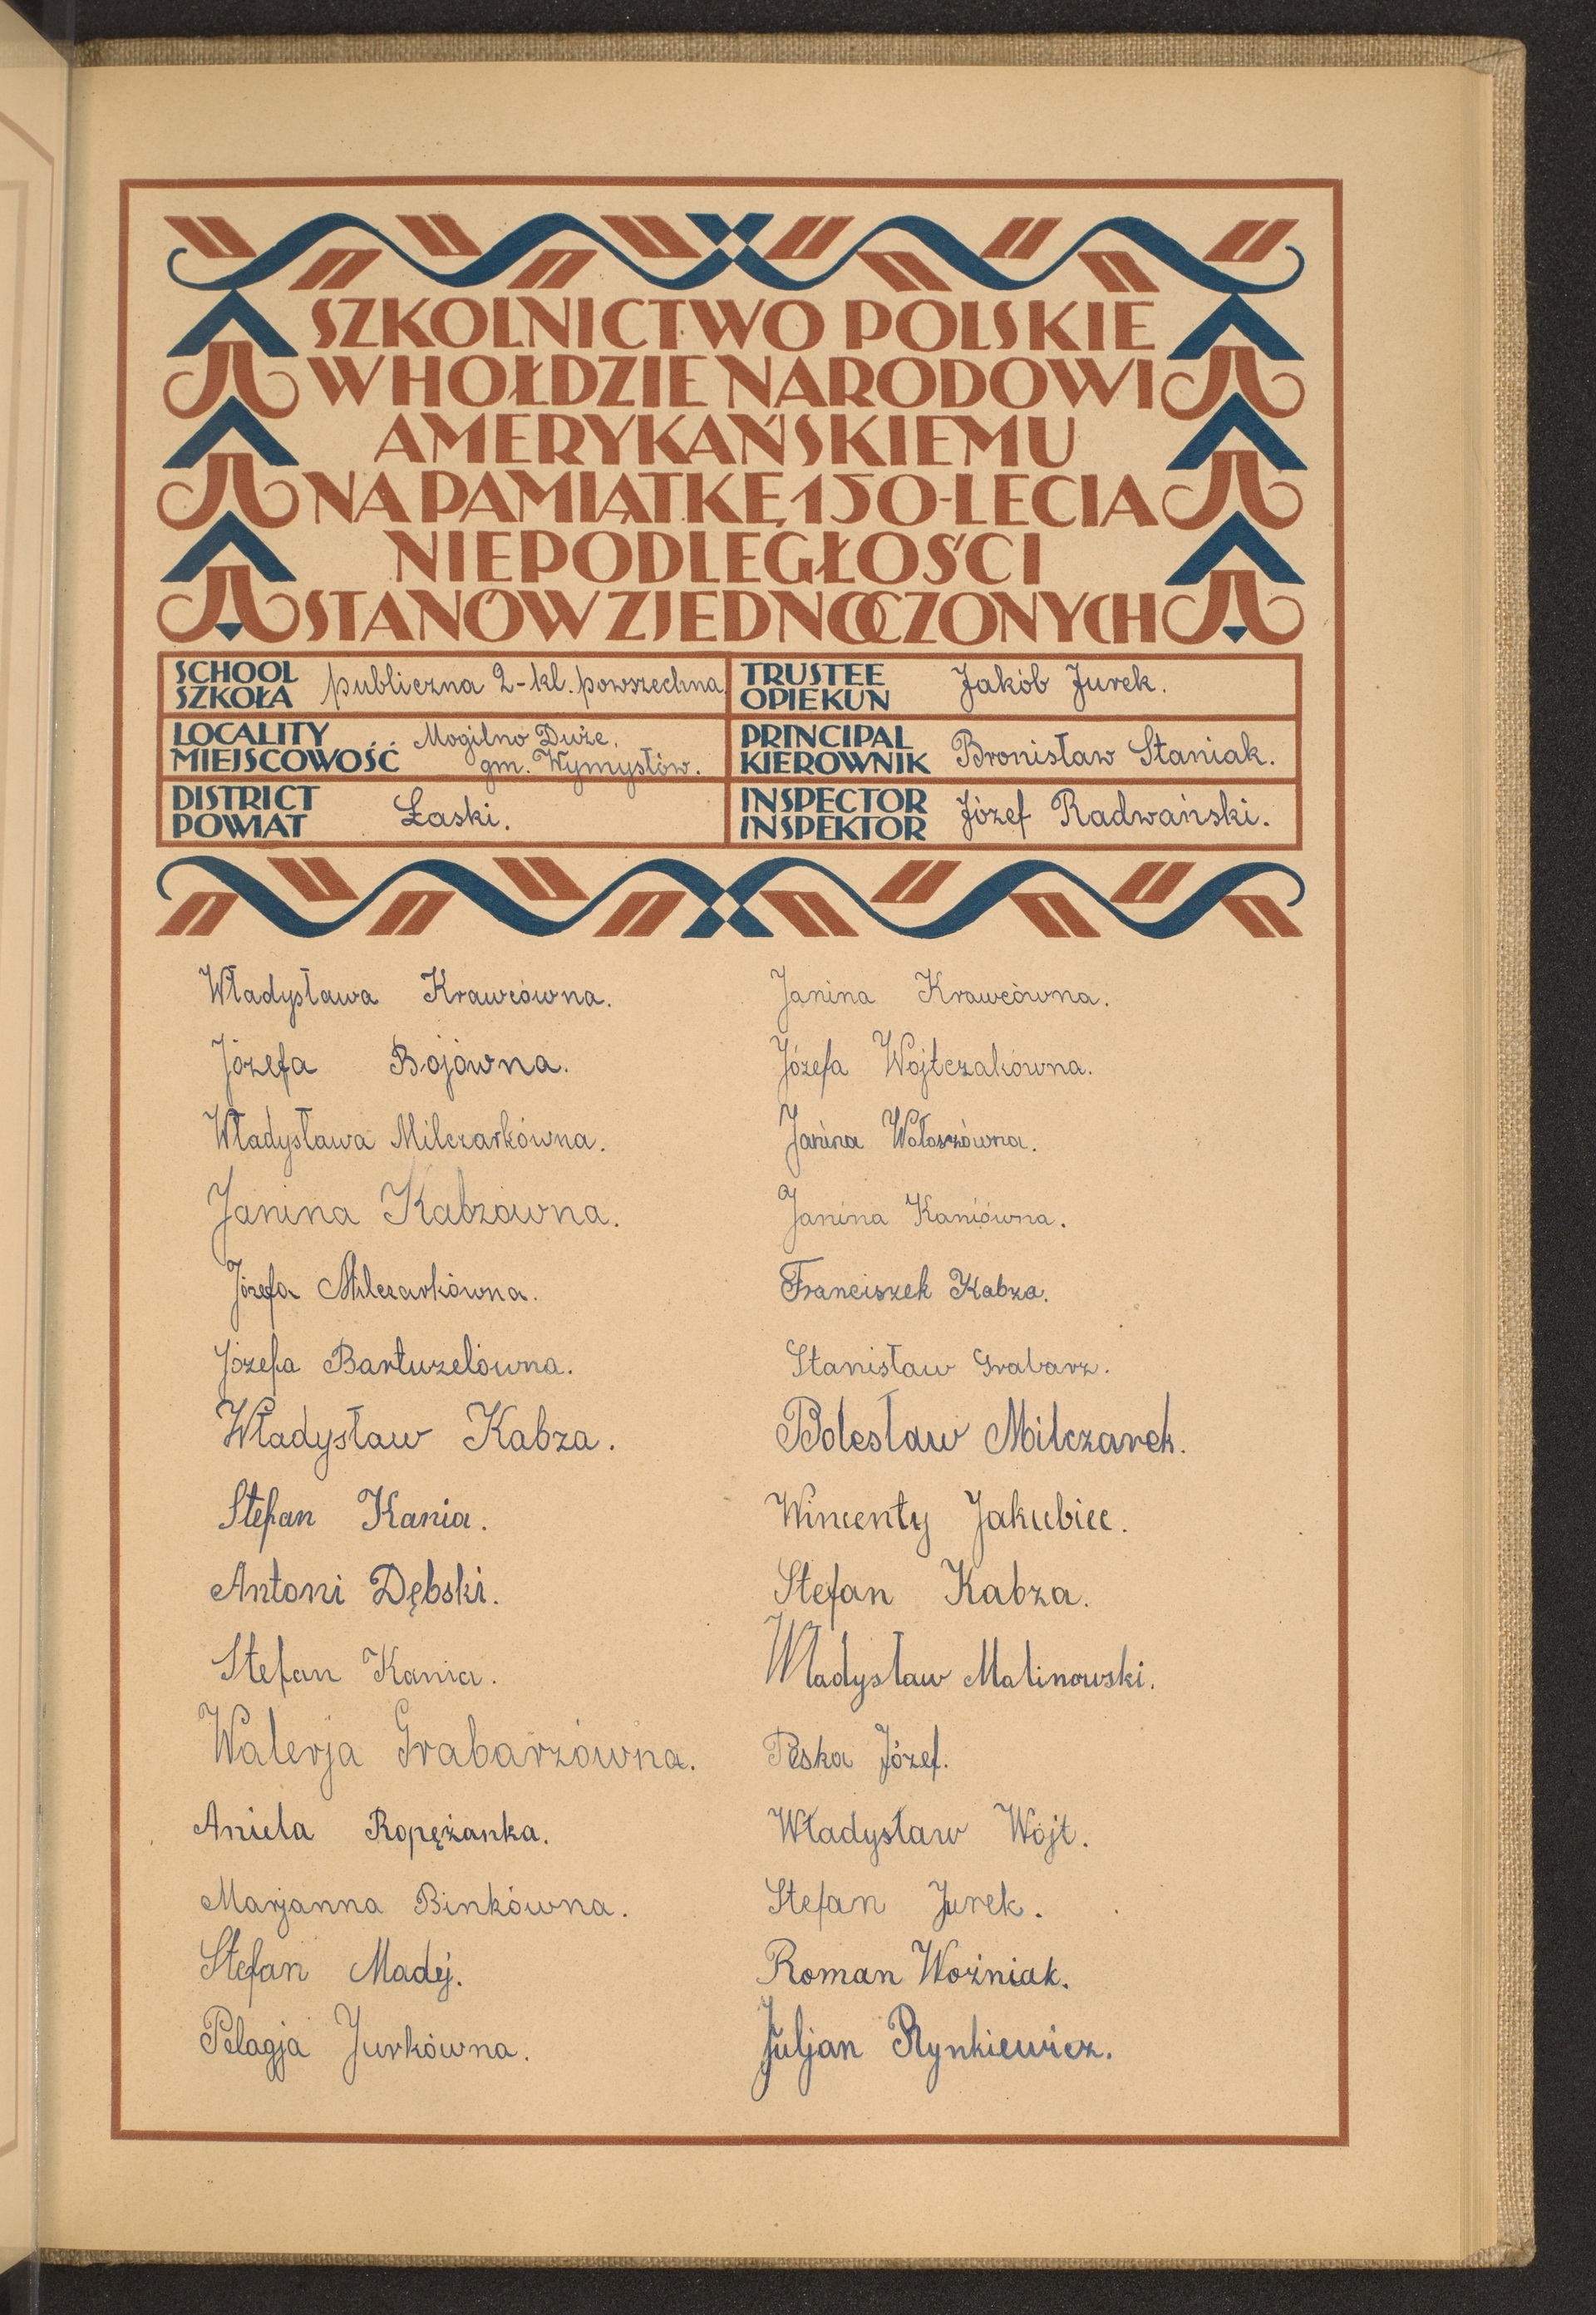 SZKOLNICTWO POLSKIE
W HOŁDZIE NARODOWI
AMERYKAŃSKIEMU
NA PAMIĄTKĘ 150-LECIA
NIEPODLEGŁOŚCI
STANÓW ZJEDNOCZONYCH
SCHOOL
SZKOŁA
publiczna 2-kl. powszechna
TRUSTEE
OPIEKUN
Jakób Jurek.
LOCALITY
MIEJSCOWOŚĆ
Mogilno Duże,
gm. Wymysłów.
PRINCIPAL
KIEROWNIK
Bronisław Staniak.
DISTRICT
POWIAT
Łaski.
INSPECTOR
INSPEKTOR
Józef Radwański.
Władysława Krawcówna.
Józefa Bojówna.
Władysława Milczarkówna.
Janina Kabzówna.
Józefa Milczarkówna.
Józefa Bartuzelówna.
Władysław Kabza.
Stefan Kania.
Antoni Dębski.
Stefan Kania.
Walerja Grabarzówna.
Aniela Ropężanka.
Marjanna Binkówna.
Stefan Madej.
Pelagja Jurkówna.
Janina Krawcówna.
Józefa Wojtczakówna.
Janina Wołoszówna.
Janina Kaniówna.
Franciszek Kabza.
Stanisław Grabarz.
Bolesław Milczarek.
Wincenty Jakubiec.
Stefan Kabza.
Władysław Malinowski.
Peska Józef.
Władysław Wójt.
Stefan Jurek.
Roman Woźniak.
Juljan Rynkiewicz.